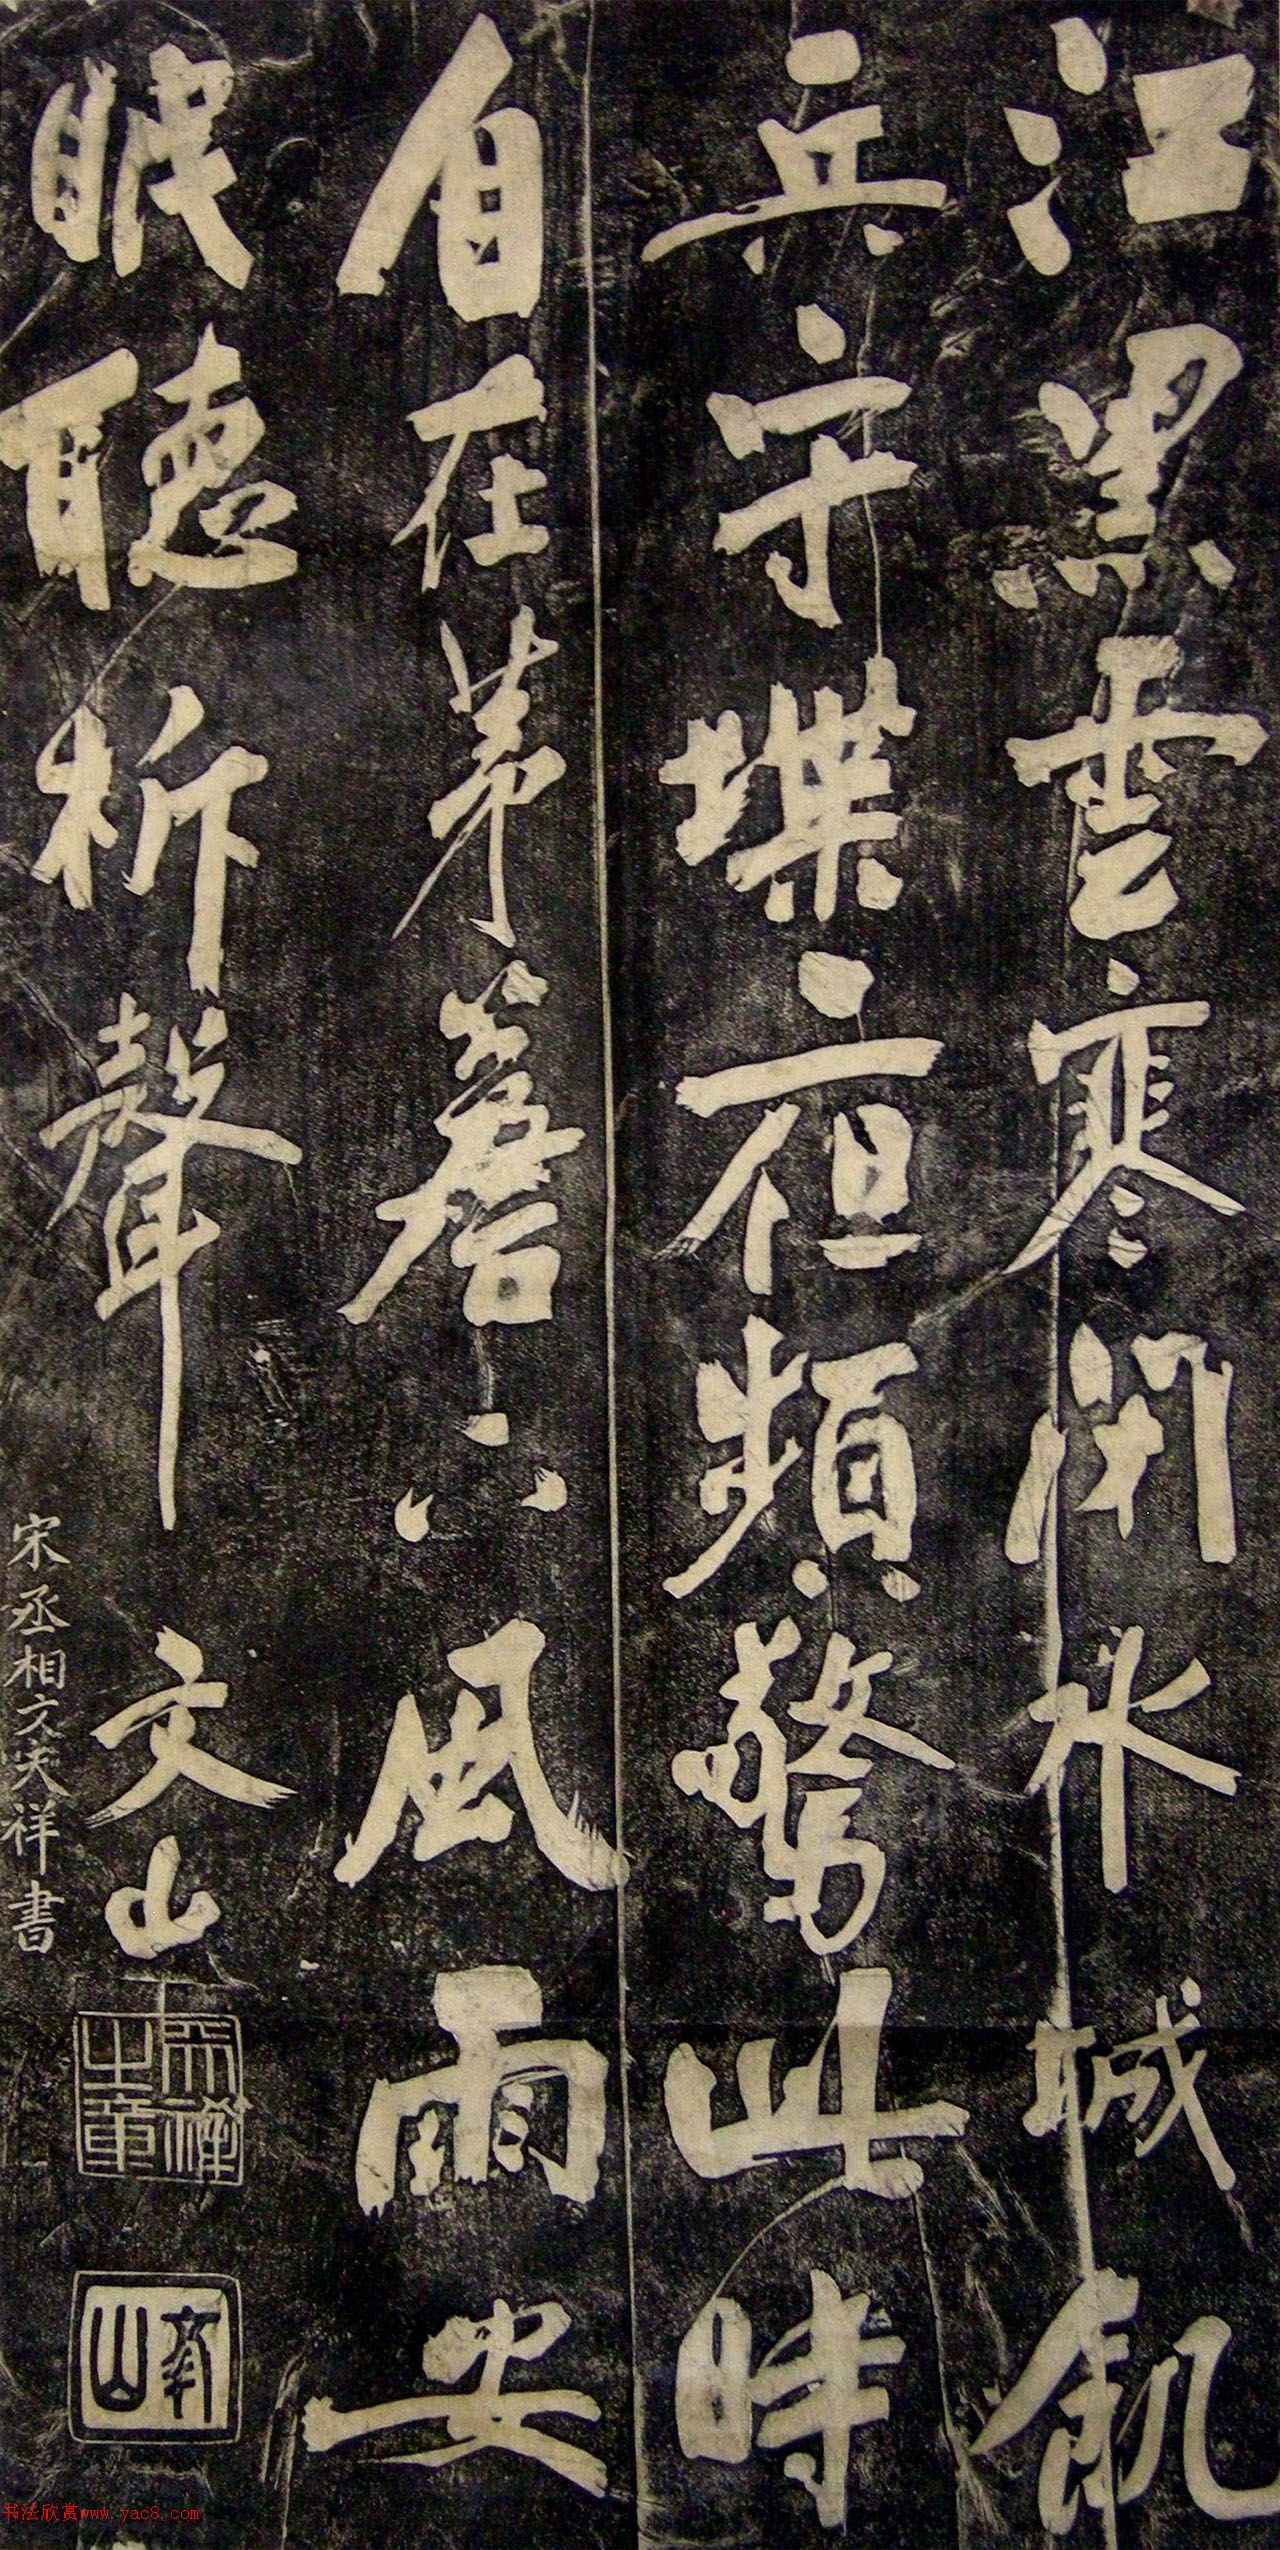 江黑雲寒閉水城飢
兵守堞夜頻驚此時
自在茅簷下風雨安
眠聽柝聲 文山
宋丞相文天祥書
天祥之章
书法欣赏www.yac8.com